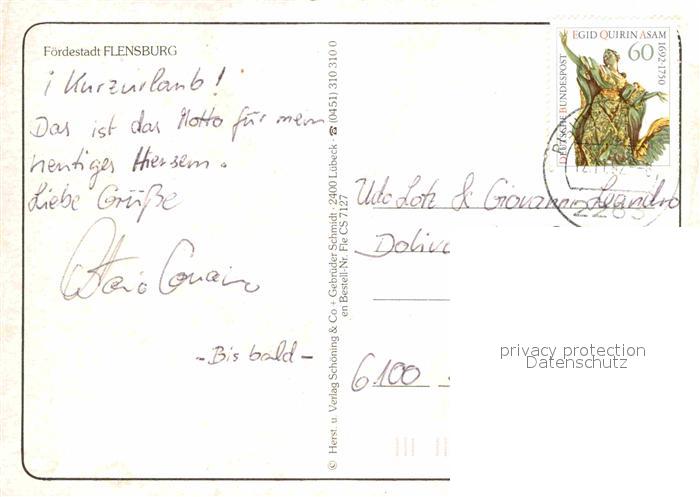 Fördestadt FLENSBURG
¡ Kurzurlaub!
Das ist das Motto für mein
heutiges Hiersein.
Liebe Grüße
- Bis bald -
© Herst. u. Verlag Schöning & Co + Gebrüder Schmidt · 2400 Lübeck · ☎ (0451) 310 310 0
en Bestell-Nr. Fle CS 7127
EGID QUIRIN ASAM
1692-1750
60
DEUTSCHE BUNDESPOST
Udo Lotz & Giovanni Leandro
6100
privacy protection
Datenschutz